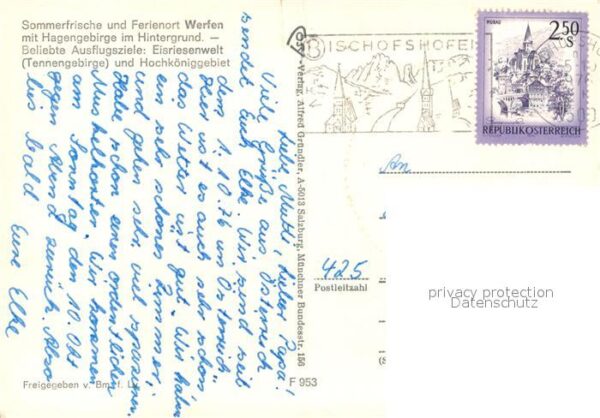 Sommerfrische und Ferienort Werfen
mit Hagengebirge im Hintergrund. —
Beliebte Ausflugsziele: Eisriesenwelt
(Tennengebirge) und Hochköniggebiet
Liebe Mutti, lieber Papa!
Viele Grüße aus Österreich
sendet Euch Elke. Wir sind seit
dem 1.10.76 in Österreich.
Hier ist es auch sehr schön,
das Wetter ist gut. Wir haben
ein sehr schönes Zimmer,
und gehen sehr viel spazieren.
Habe schon einen ordentlichen
Muskelkater. Wir kommen
am Sonntag den 10. Okt
gegen Abend zurück. Also
bis bald
Eure Elke
Freigegeben v.
F 953
Verlag, Alfred Gründler, A-5013 Salzburg, Münchner Bundesstr. 156
BISCHOFSHOFEN
MURAU
2.50
S
REPUBLIK ÖSTERREICH
An
425
Postleitzahl
privacy protection
Datenschutz